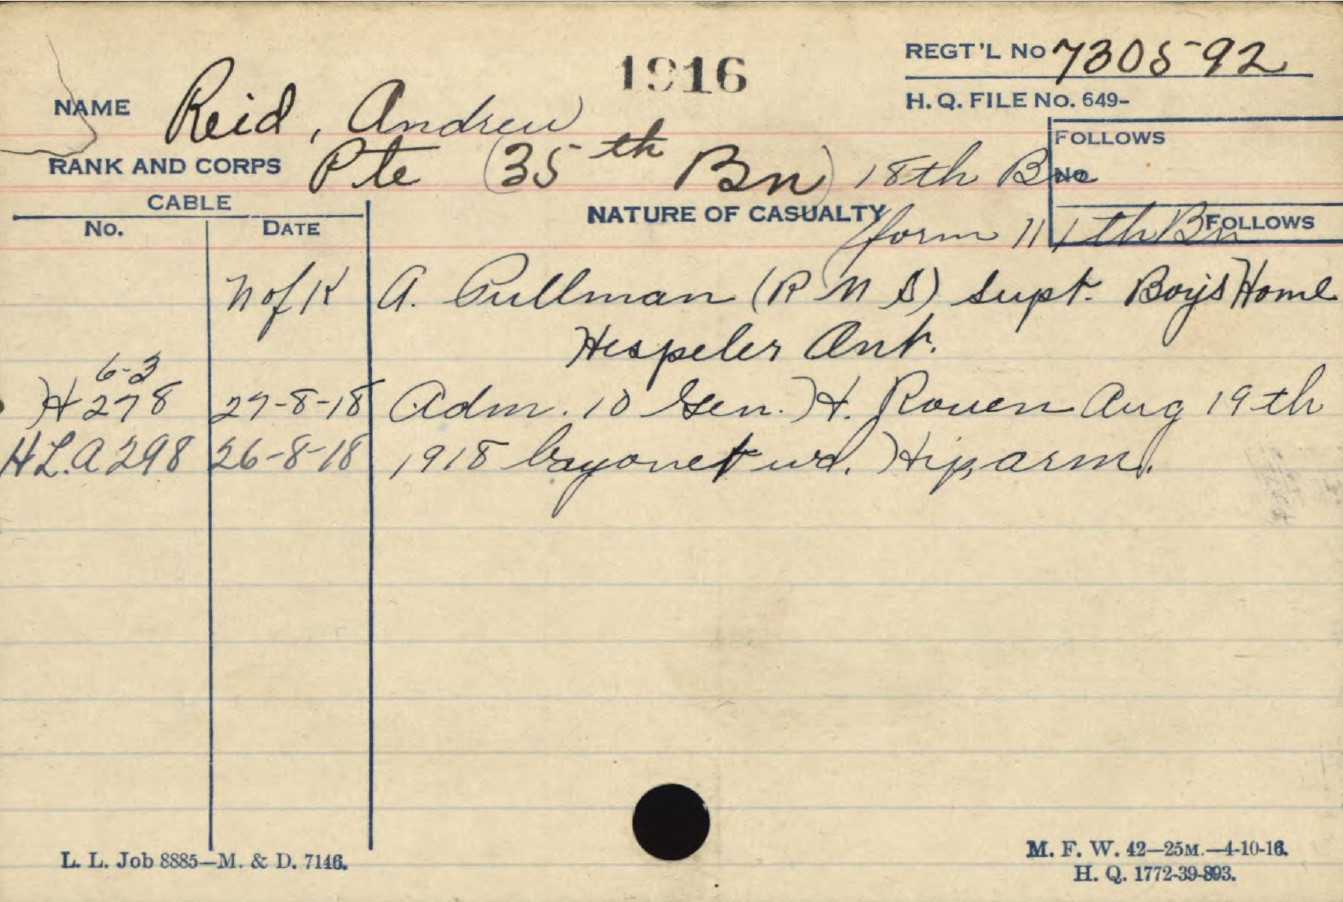 1916
REGT'L No 730592
H. Q. FILE No. 649-
NAME Reid, Andrew
FOLLOWS
No.
RANK AND CORPS Pte (35th Bn) 18th Bn
FOLLOWS
form 111th Bn
CABLE
NATURE OF CASUALTY
No. DATE
N of K A. Pullman (R N S) Supt. Boy's Home
Hespeler Ont.
6-3
H 278 27-8-18 Adm. 10 Gen. H. Rouen Aug 19th
H.L.A 298 26-8-18 1918 bayonet wd. Hip, arm.
L. L. Job 8885—M. & D. 7146.
M. F. W. 42—25M.—4-10-16.
H. Q. 1772-39-893.